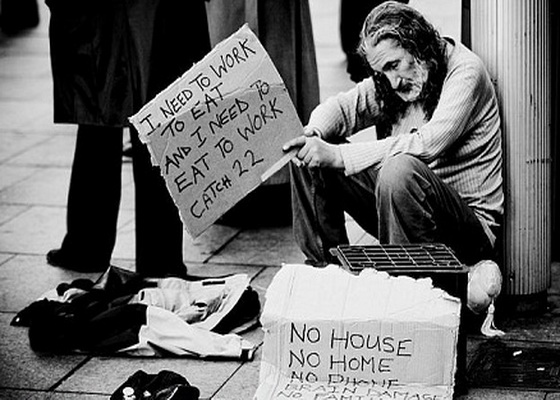 I NEED TO WORK
TO EAT
AND I NEED TO
EAT TO WORK
CATCH 22
NO HOUSE
NO HOME
NO PHONE
BRAIN DAMAGE
NO FAMILY